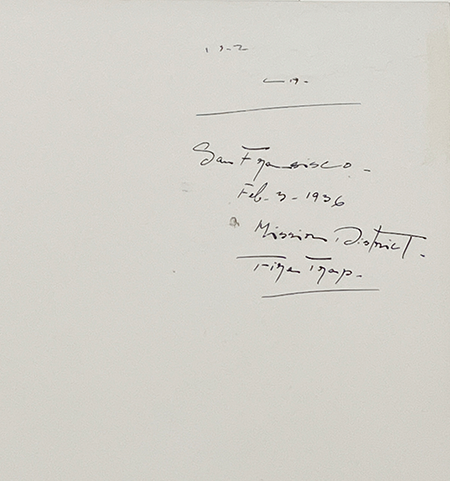 San Francisco -
Feb. 3 - 1936
Mission District.
Fire Trap.